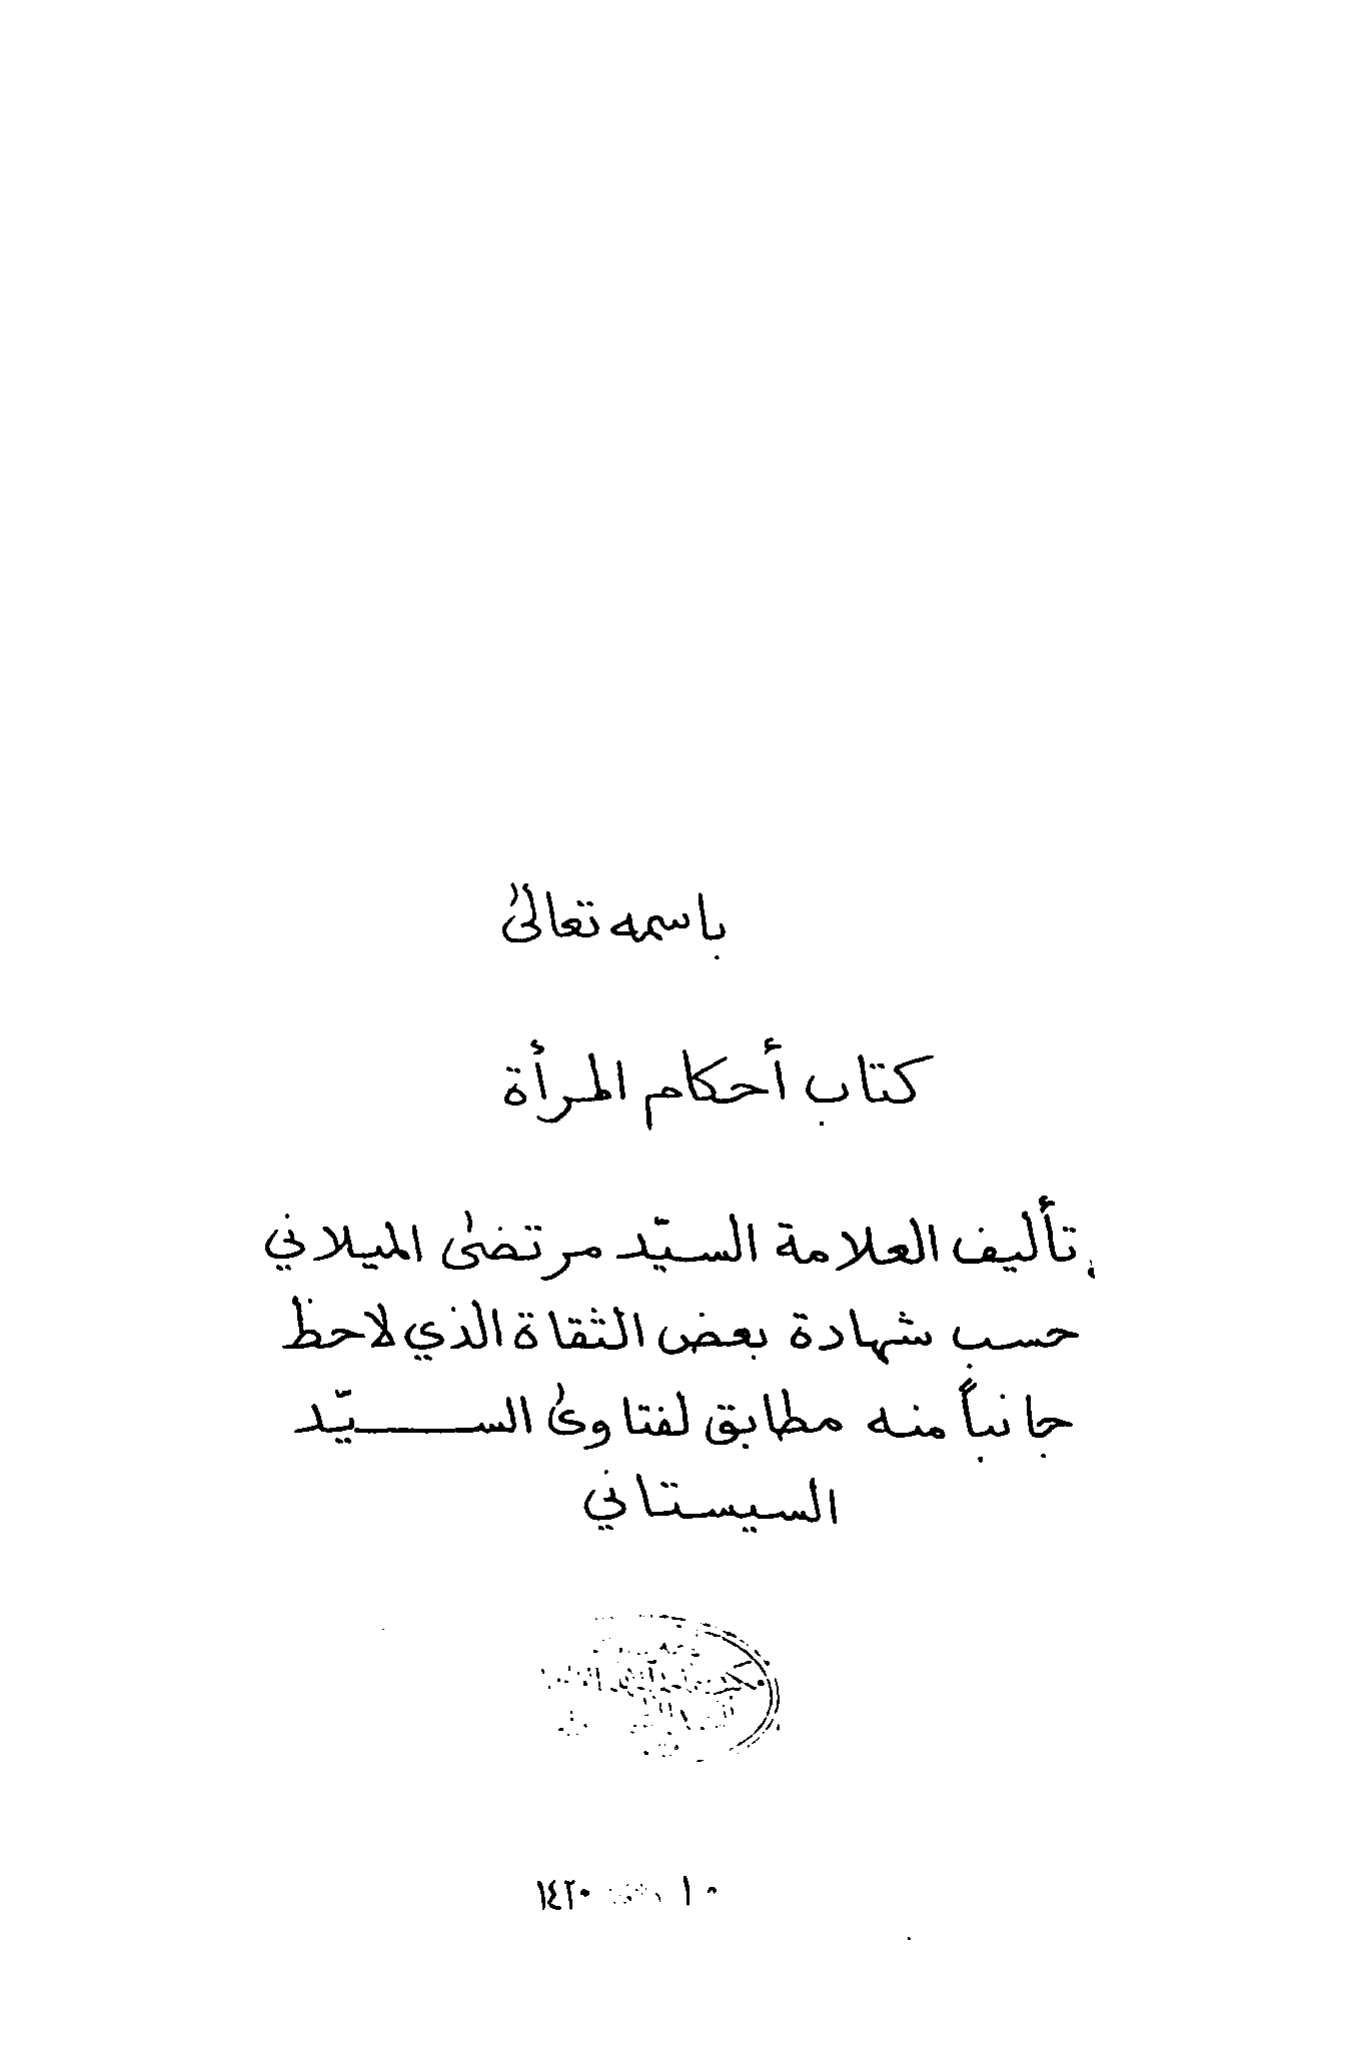 باسمه تعالىٰ
كتاب أحكام المرأة
تأليف العلامة السيّد مرتضىٰ الميلاني
حسب شهادة بعض الثقاة الذي لاحظ
جانباً منه مطابق لفتاوىٰ الســـيّد
السيستاني
١٤٢٠